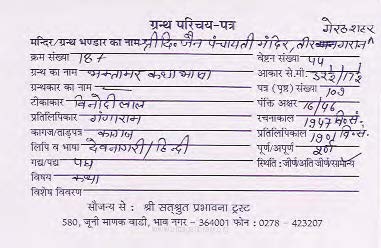 ग्रन्थ परिचय-पत्र
मन्दिर/ग्रन्थ भण्डार का नाम श्री दि. जैन पंचायती मंदिर,
क्रम संख्या 18/ वेष्टन संख्या ५५
ग्रन्थ का नाम भक्तामर कथा भाषा आकार से.मी.
ग्रन्थकार का नाम — पत्र (पृष्ठ) संख्या १०७
टीकाकार विनोदीलाल पंक्ति अक्षर 16/46
प्रतिलिपिकार गंगाराम रचनाकाल 1947 वि.सं.
कागज/ताड़पत्र कागज प्रतिलिपिकाल वि.सं.
लिपि व भाषा देवनागरी/हिन्दी पूर्ण/अपूर्ण पूर्ण
गद्य/पद्य पद्य स्थिति : जीर्ण/अति जीर्ण/सामान्य
विषय कथा
विशेष विवरण
सौजन्य से : श्री सत्श्रुत प्रभावना ट्रस्ट
580, जूनी माणक वाडी, भाव नगर - 364001 फोन : 0278 - 423207